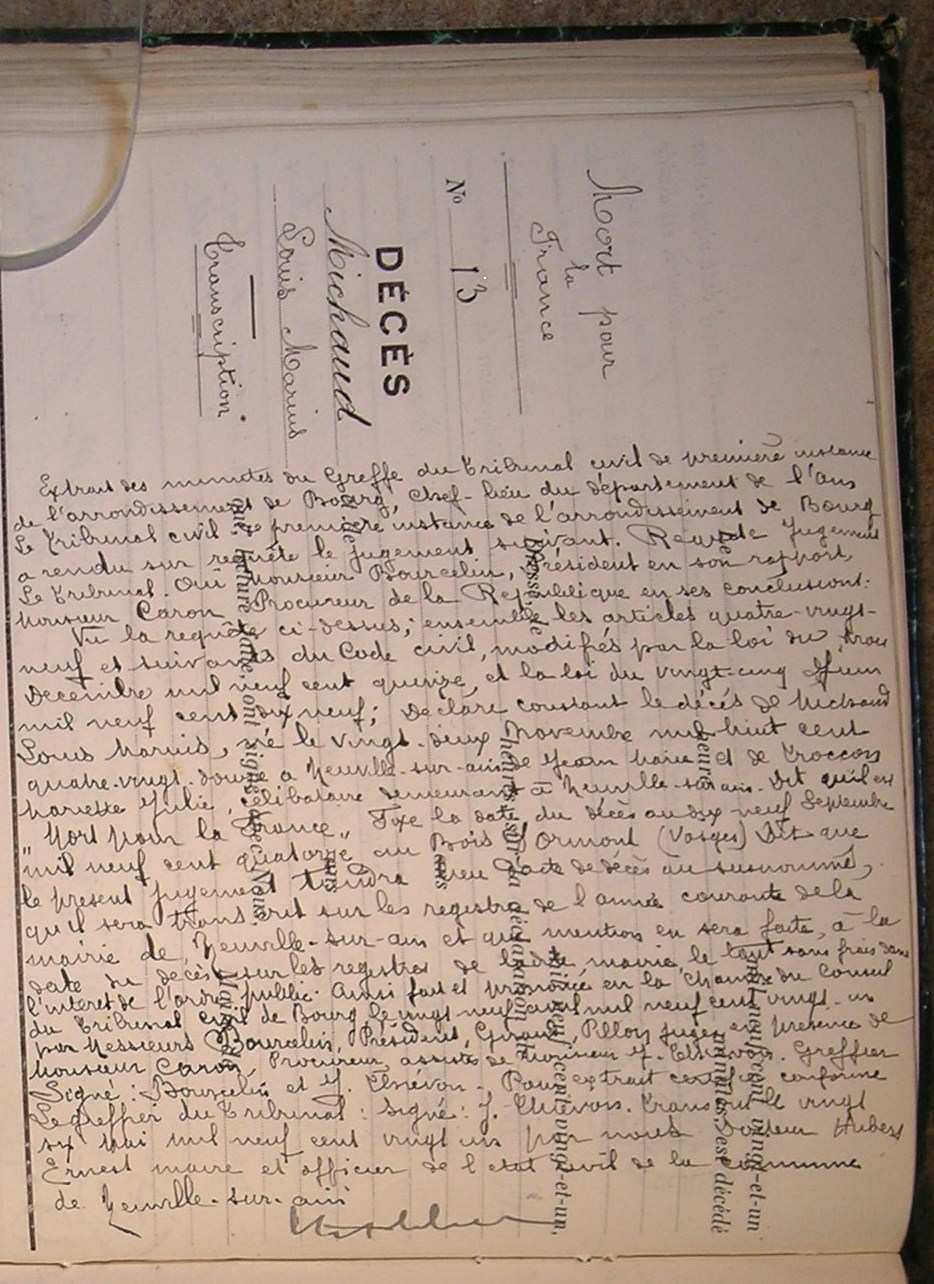 Mort pour
la
France
N° 13
DÉCÈS
Michaud
Louis Marius
Transcription
Extrait des minutes du Greffe du Tribunal civil de première instance
de l'arrondissement de Bourg, chef-lieu du département de l'Ain
Le Tribunal civil de première instance de l'arrondissement de Bourg
a rendu sur requête le jugement suivant. Jugement
Le Tribunal. Oui Monsieur Bourcelin, Président en son rapport,
Monsieur Caron Procureur de la République en ses conclusions:
Vu la requête ci-dessus; ensemble les articles quatre-vingt-
neuf et suivants du Code civil, modifiés par la loi du trois
Decembre mil neuf cent quinze, et la loi du vingt-cinq Juin
mil neuf cent dix neuf; Déclare constant le décès de Michaud
Louis Marius, né le vingt-deux Novembre mil huit cent
quatre-vingt-douze a Neuville-sur-ain de Jean Marie et de Troccon
Mariette Julie, célibataire demeurant à Neuville-sur-ain. Dit qu'il est
"Mort pour la France" Fixe la date du décès au dix neuf Septembre
mil neuf cent quatorze au Bois d'Ormont (Vosges) Dit que
le présent jugement tiendra lieu d'acte de décès au susnommé,
qu'il sera transcrit sur les registres de l'année courante de la
mairie de Neuville-sur-ain et que mention en sera faite, à la
date du décès sur les registres de ladite mairie, le tout sans frais dans
l'intérêt de l'ordre public. Ainsi fait et prononcé en la chambre du Conseil
du Tribunal civil de Bourg le vingt neuf avril mil neuf cent vingt-un
par Messieurs Bourcelin, Président, Pillon juges en présence de
Monsieur Caron, Procureur, assistés de Monsieur J. Greffier
Signé: Bourcelin et J. Pour extrait certifié conforme
Le greffier du Tribunal: Signé: J. Transcrit le vingt
six Mai mil neuf cent vingt un par nous Hubert
Ernest maire et officier de l'etat civil de la commune
de Neuville-sur-ain